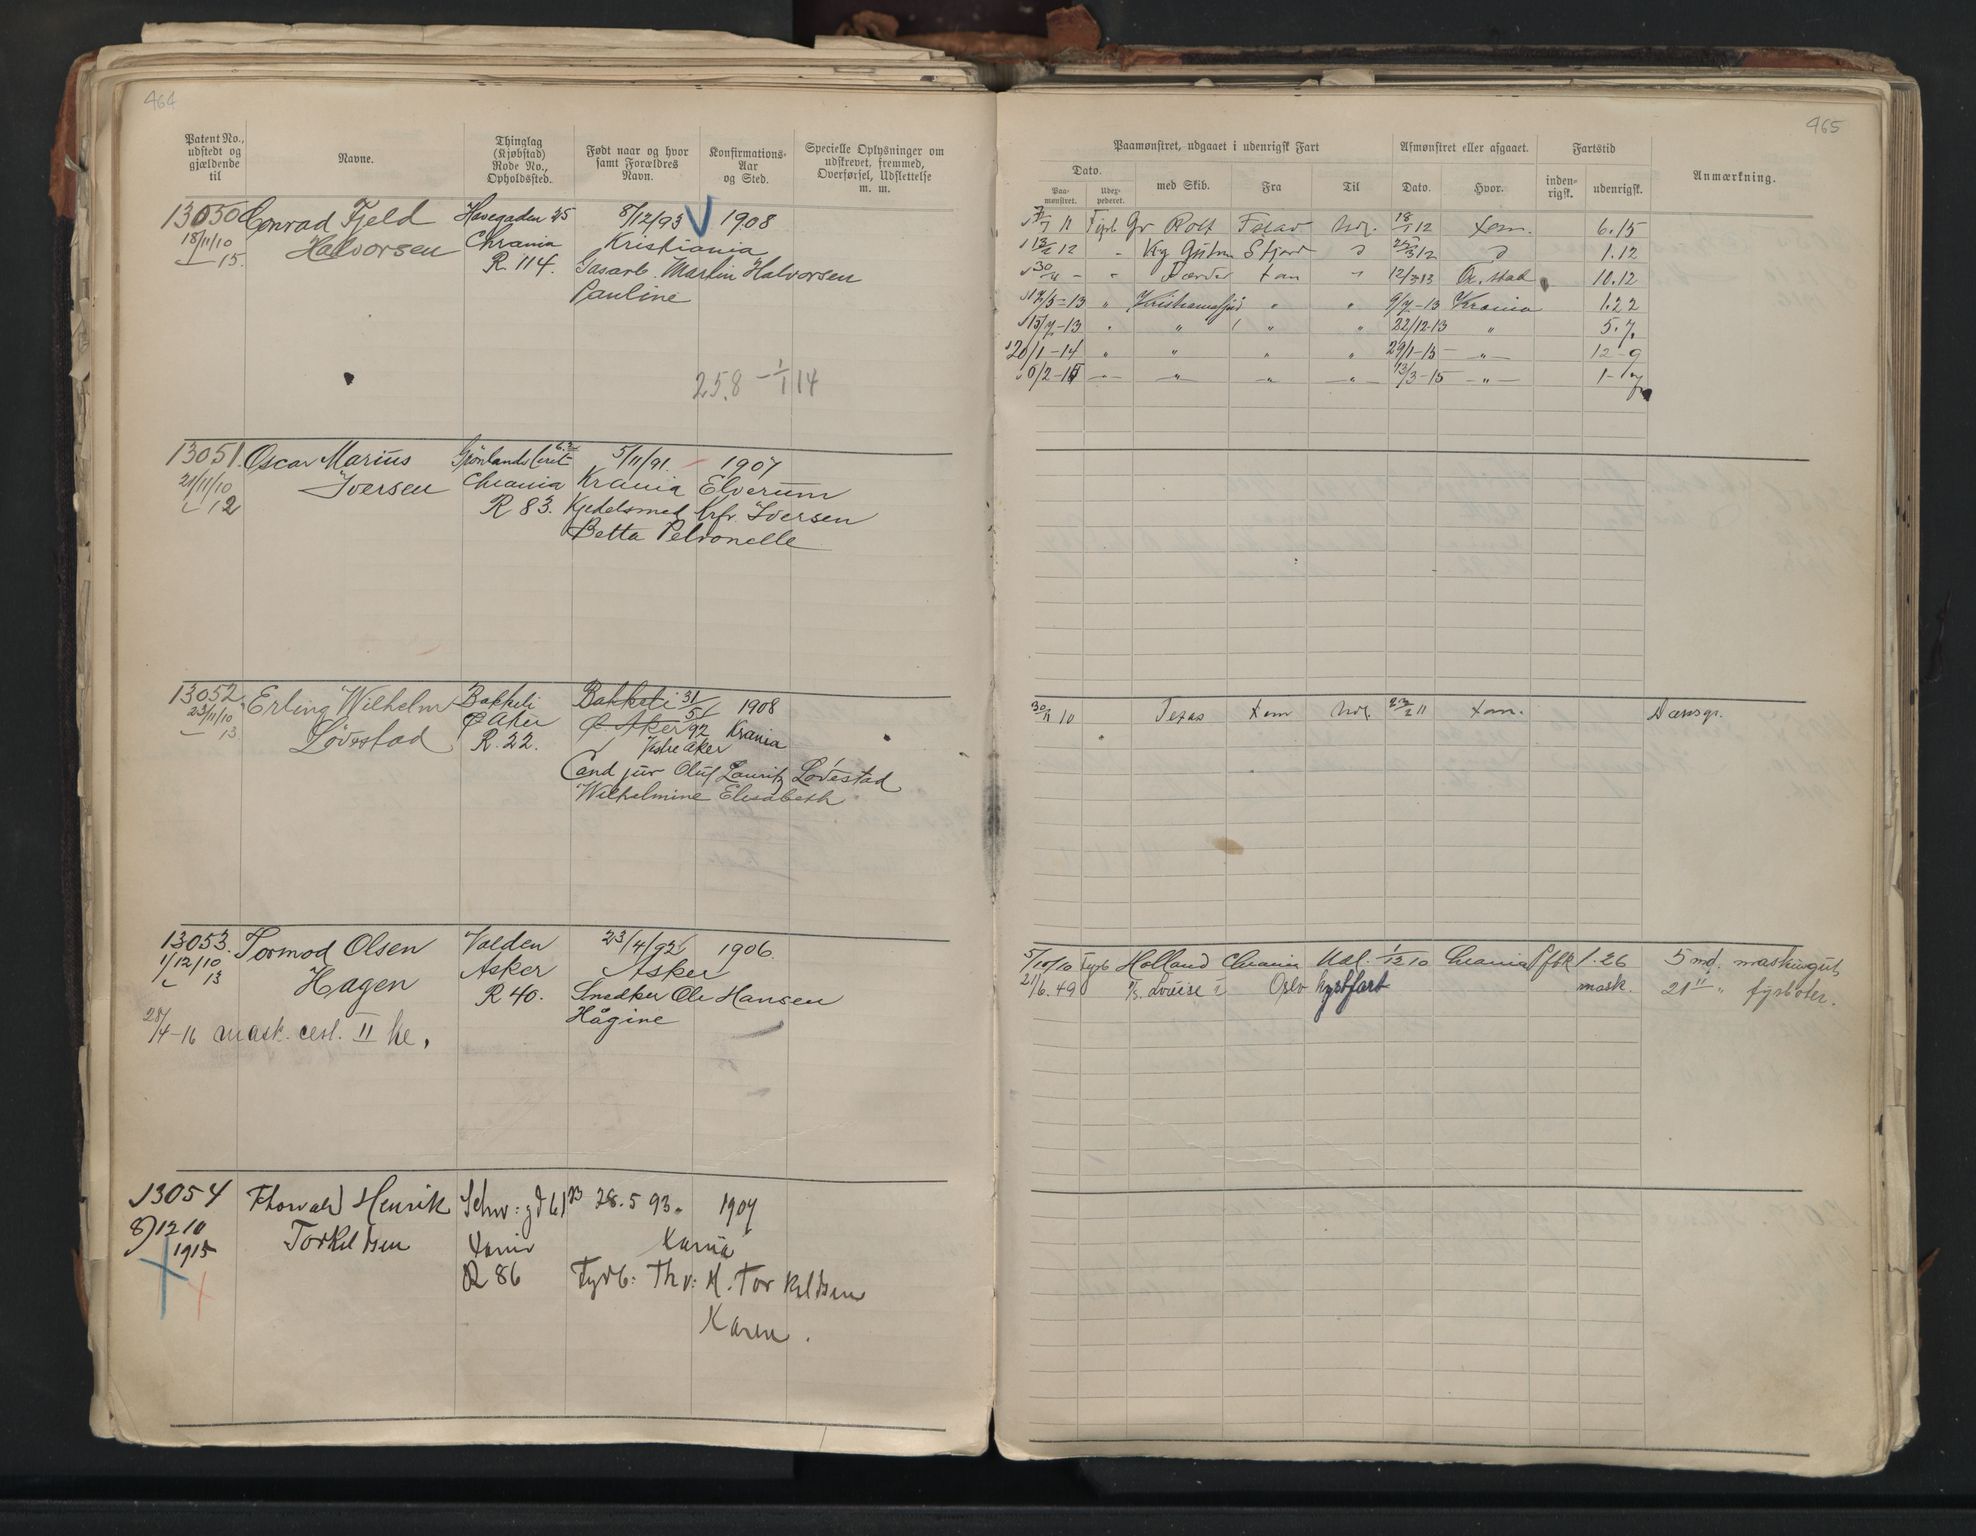 464
Patent No., udstedt og gjældende til
Navne.
Thinglag (Kjøbstad) Rode No., Opholdssted.
Født naar og hvor samt Forældres Navn.
Konfirmations-Aar og Sted.
Specielle Oplysninger om udskrevet, fremmed, Overførsel, Udslettelse m. m.
13050 Conrad Fjeld Havegaden 25 8/12/93 1908
18/11/10 Halvorsen Chrania Kristiania
— 15. R. 114. Gasarb. Martin Halvorsen
Pauline
258 – 1/1 14
13051. Oscar Marius Grönlandsleret 63 5/11/91. 1907
21/11/10 Iversen Chrania Krania Elverum
12 R 83. Kjedelsmed Krfr. Iversen
Betta Petronelle
13052. Erling Wilhelm Bakkeli Bakkeli 31/5 1908
23/11/10 Lövestad Ø Aker Ø. Aker 92 Krania
— 13 R. 22. Vestre Aker
Cand jur Oluf Lauritz Lövestad
Wilhelmine Elisabeth
13053. Tormod Olsen Valden 23/4/92 1906.
1/12/10 Hagen Asker Asker
13 R 40. Snedker Ole Hansen
Hågine
28/4-16 mask. cert. II kl.
13054 Thorvald Henrik 28.5 93. 1907
8/12 10 Torkildsen Xania Xania
1915 R 86 Fyrb: Thv: H. Torkildsen
Karen.
465
Paamønstret, udgaaet i udenrigsk Fart
Afmønstret eller afgaaet.
Fartstid
Anmærkning.
Dato.
Paa-mønstret. Udex-pederet. med Skib. Fra Til Dato. Hvor. inden-rigsk. udenrigsk.
7/7 11 Fyrb Gr Rolf Fstav Udl. 18/1 12 Xania. 6.15
13/2 12 " Kg Gustav Sfjord " 25/3 12 " 1.12
30/4 – " Færder Xan " 12/3 13 Fr. stad 10.12
17/5–13 " Kristianiafjord " " 9/7–13 Krania 1.22
15/7–13 " " " " 22/12–13 " 5.7.
20/1–14 " " " " 29/1–15 –"– 12–9
6/2–15 –"– –"– –"– –"– 13/3–15 –"– 1–7
30/11 10 Texas Xan Udl. 23/2 11 Xan. Dæksgr.
5/10/10 Fyrb Holland Chrania Udl. 1/12 10 Chrania 1.26 5 md. maskingut
21/6.49 D/s. Louise Oslo kystfart mask. 21 " " fyrböter.